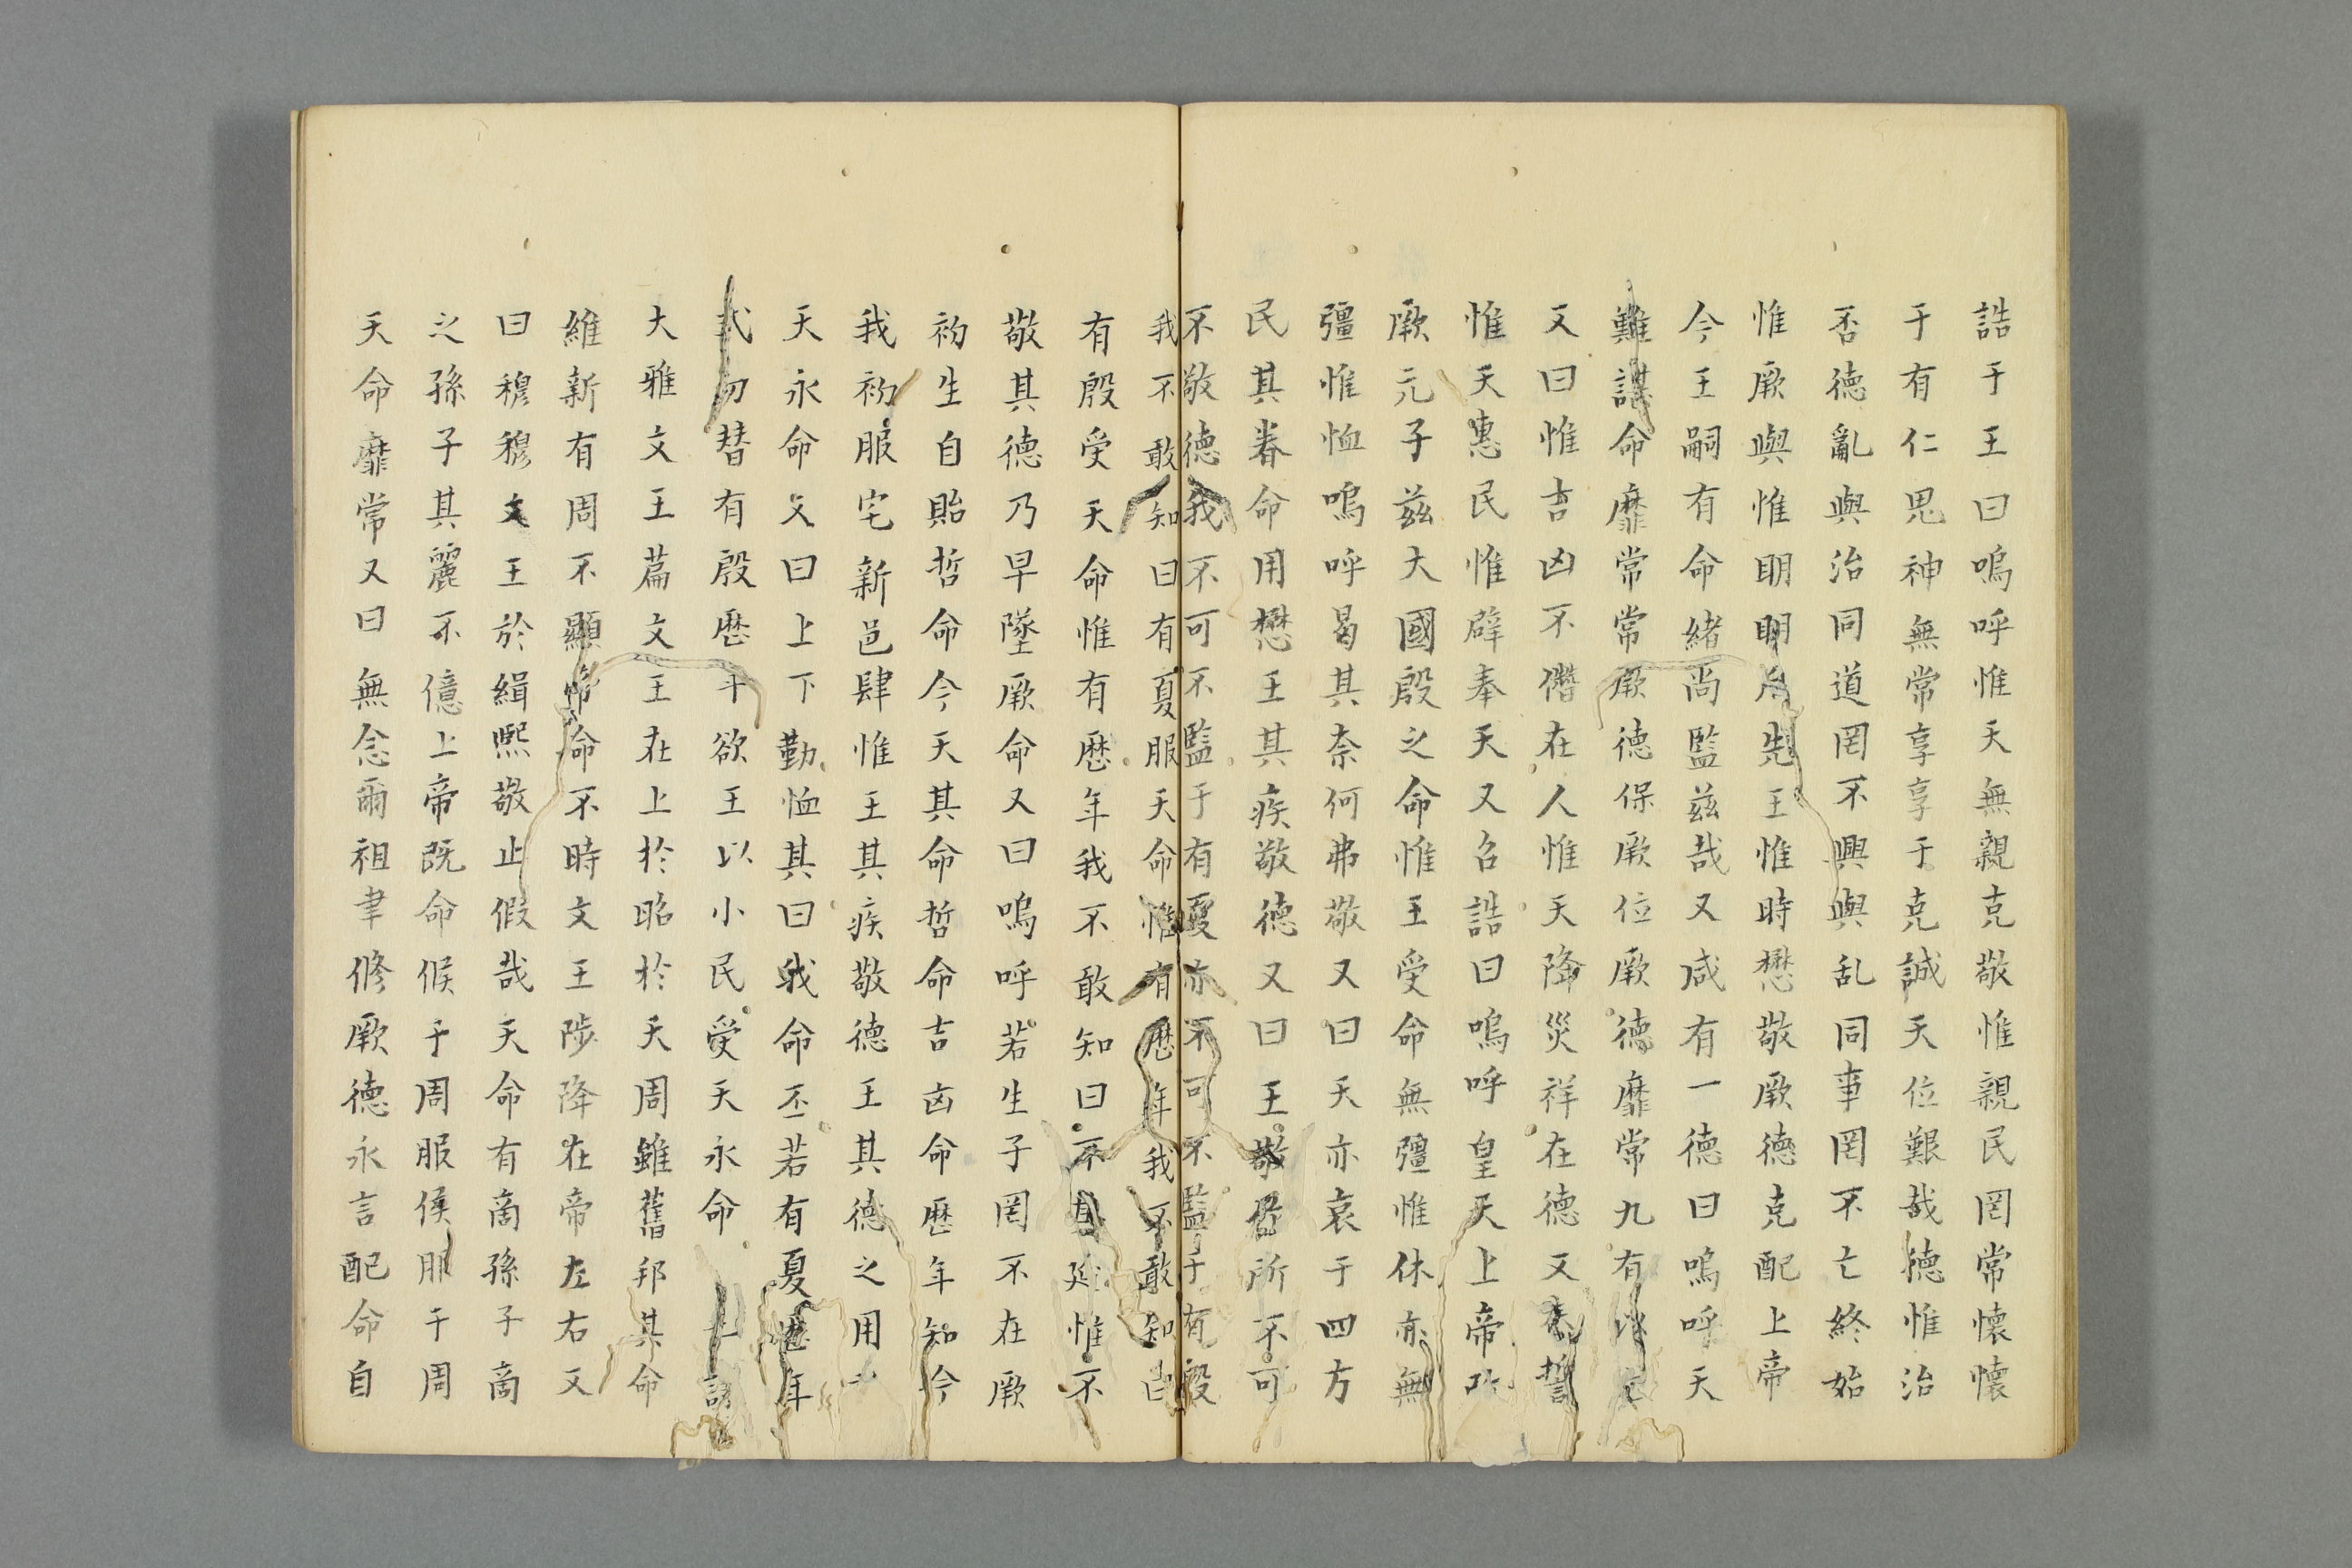 誥于王曰嗚呼惟天無親克敬惟親民罔常懷懷
于有仁鬼神無常享享于克誠天位艱哉德惟治
否德亂與治同道罔不興與乱同事罔不亡終始
惟厥與惟明明后先王惟時懋敬厥德克配上帝
今王嗣有命緒尚監茲哉又咸有一德曰嗚呼天
難諶命靡常常厥德保厥位厥德靡常九有以亡
又曰惟吉凶不僭在人惟天降災祥在德又泰誓
惟天惠民惟辟奉天又召誥曰嗚呼皇天上帝改
厥元子茲大國殷之命惟王受命無疆惟休亦無
疆惟恤嗚呼曷其奈何弗敬又曰天亦哀于四方
民其眷命用懋王其疾敬德又曰王敬作所不可
不敬德我不可不監于有夏亦不可不監于有殷
我不敢知曰有夏服天命惟有歷年我不敢知曰
有殷受天命惟有歷年我不敢知曰不其延惟不
敬其德乃早墜厥命又曰嗚呼若生子罔不在厥
初生自貽哲命今天其命哲命吉凶命歷年知今
我初服宅新邑肆惟王其疾敬德王其德之用
天永命又曰上下勤恤其曰我命丕若有夏歷年
式勿替有殷歷年欲王以小民受天永命 詩
大雅文王篇文王在上於昭於天周雖舊邦其命
維新有周不顯帝命不時文王陟降在帝左右又
曰穆穆文王於緝熙敬止假哉天命有商孫子商
之孫子其麗不億上帝既命候于周服侯服于周
天命靡常又曰無念爾祖聿修厥德永言配命自